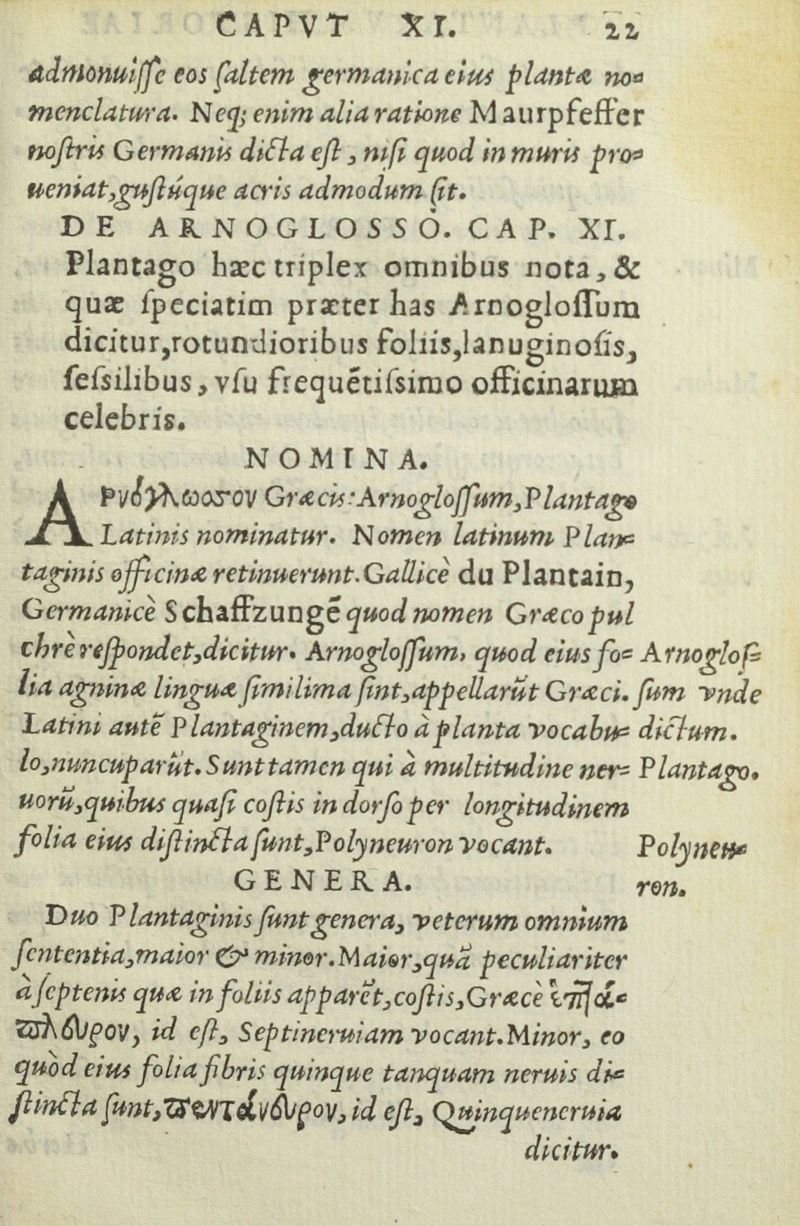 CAPVT XI. 22
admonuiſſe eos ſaltem germanica eius plantæ no=
menclatura. Neq; enim alia ratione Maurpfeffer
noſtris Germanis dicta eſt, niſi quod in muris pro=
ueniat, guſtúque acris admodum ſit.
DE ARNOGLOSSO. CAP. XI.
Plantago hæc triplex omnibus nota, &
quæ ſpeciatim præter has Arnogloſſum
dicitur, rotundioribus foliis, lanuginoſis,
ſeſsilibus, vſu frequẽtiſsimo officinarum
celebris.
NOMINA.
Αρνόγλωσσον Græcis: Arnogloſſum, Plantago
Latinis nominatur. Nomen latinum Plan=
taginis officinæ retinuerunt. Gallicè du Plantain,
Germanicè Schaffzungẽ quod nomen Græco pul
chrè reſpondet, dicitur. Arnogloſſum, quod eius fo=
lia agninæ linguæ ſimilima ſint, appellarũt Græci.
Latini autẽ Plantaginem, ducto à planta vocabu=
lo, nuncuparũt. Sunt tamen qui à multitudine ner=
uorũ, quibus quaſi coſtis in dorſo per longitudinem
folia eius diſtincta ſunt, Polyneuron vocant.
Arnogloſ=
ſum vnde
dictum.
Plantago.
Polyneu=
ron.
GENERA.
Duo Plantaginis ſunt genera, veterum omnium
ſententia, maior & minor. Maior, quã peculiariter
à ſeptenis quæ in foliis apparẽt, coſtis, Græcè ἑπτά=
πλευρον, id eſt, Septineruiam vocant. Minor, eo
quòd eius folia fibris quinque tanquam neruis di=
ſtincta ſunt, πεντάνευρον, id eſt, Quinqueneruia
dicitur.